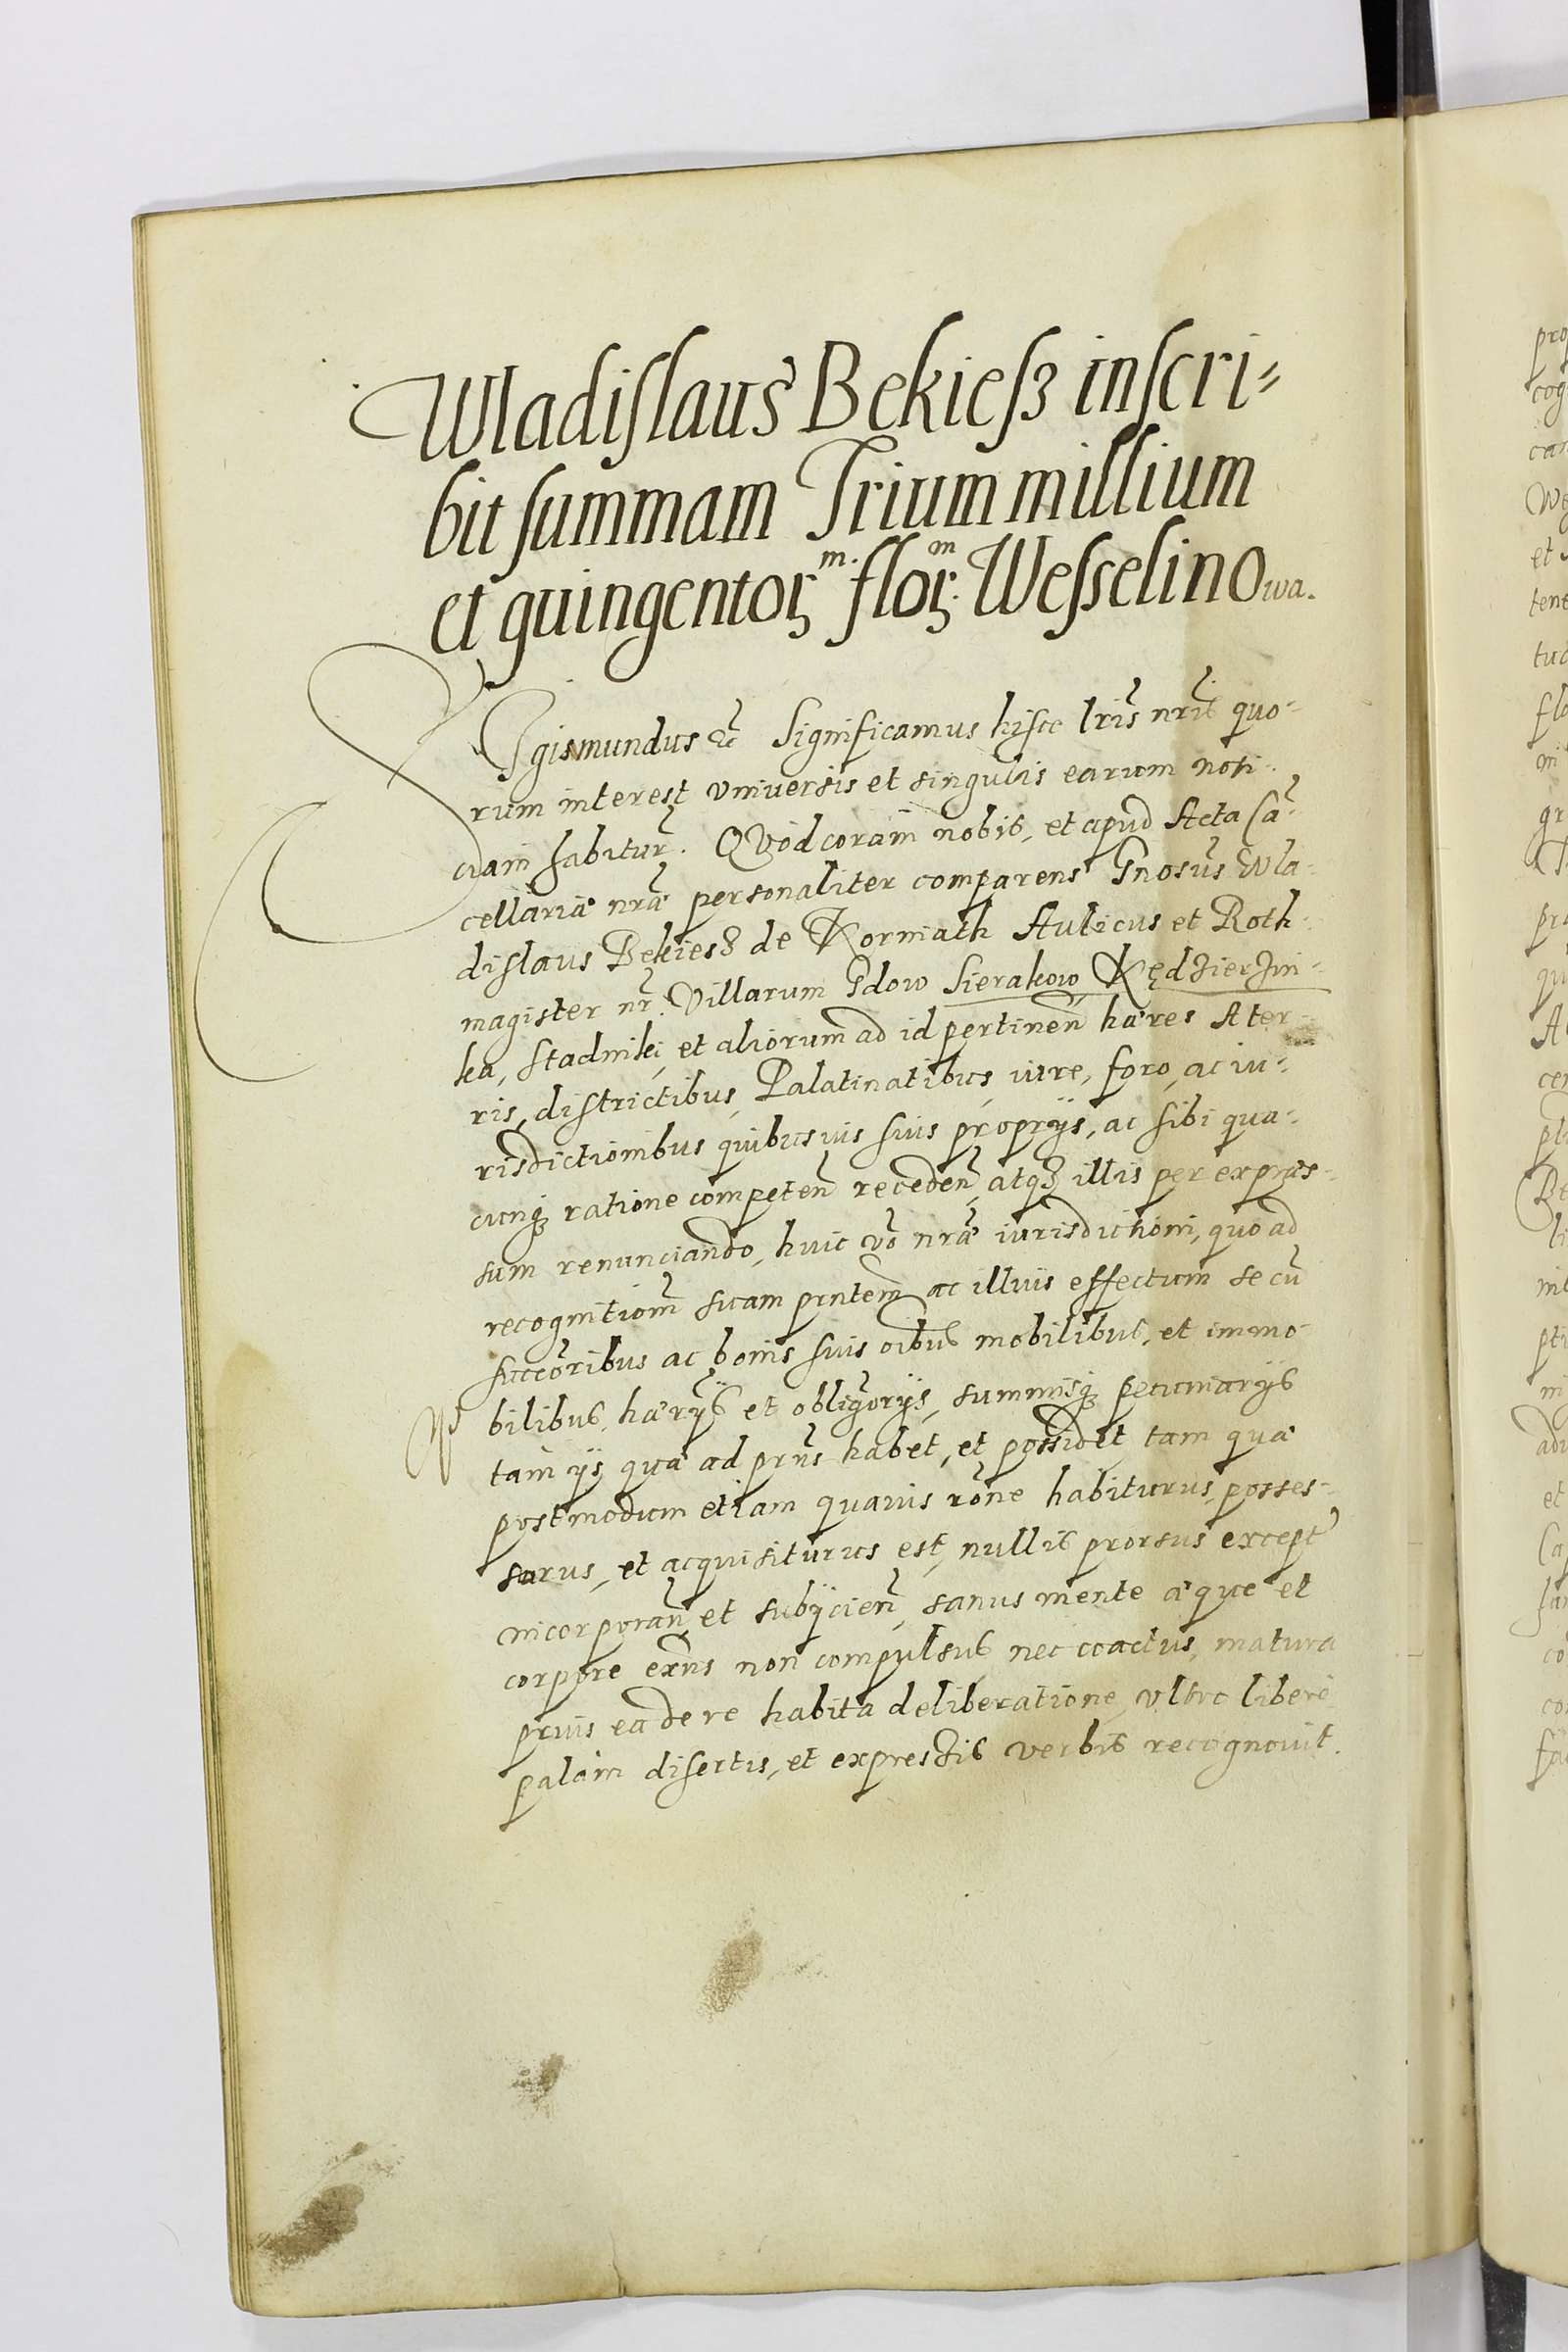 Wladislaus Bekiesz inscri-
bit summam Trium millium
et quingentor m. flor m Wesselinowa.
Sigismundus etc Significamus hisce lris nris quo-
rum interest vniuersis et singulis earum noti-
ciam habitur. Quod coram nobis, et apud Acta Ca-
cellariæ nræ personaliter comparens Gnosus Wla-
dislaus Bekiesz de Korniath Aulicus et Roth-
magister nr. Villarum Gdow Sierakow Kędzierzin-
ka, Stadniki, et aliorum ad id pertinen hæres A ter-
ris, districtibus, Palatinatibus, iure, foro, ac iu-
risdictionibus quibusuis suis proprijs, ac sibi qua-
cunq ratione competen receden, atq illis per expræs-
sum renunciando, huic vo nræ iurisdictioni, quo ad
recognitiom suam pntem ac illius effectum se cu
succoribus ac bonis suis oibus mobilibus, et immo-
bilibus, hærijs et obligorijs, summisq pecuniarijs
tam ijs quæ ad prns habet, et possidet tam quæ
postmodum etiam quauis rone habiturus, posses-
surus, et acquisiturus est, nullis prorsus except
incorporan et subijcien, sanus mente æque et
corpore exns non compulsus nec coactus, matura
prius ea de re habita deliberatione, vltro libere
palam disertis, et expressis verbis recognouit.